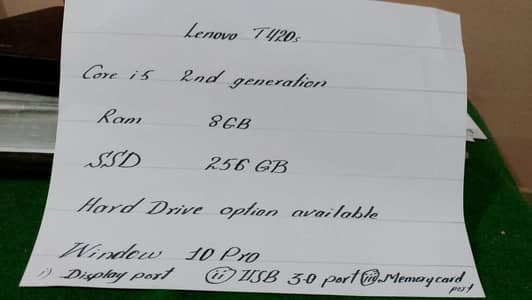 Lenovo T420s
Core i5 2nd generation
Ram 8GB
SSD 256 GB
Hard Drive option available
Window 10 Pro
i) Display port (ii) USB 3.0 port (iii). Memory card
port